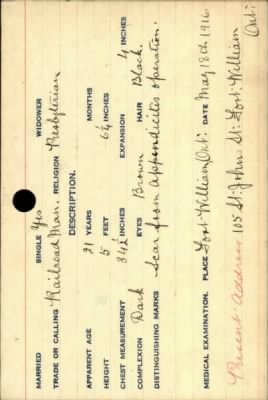 MARRIED SINGLE Yes WIDOWER
TRADE OR CALLING Railroad Man. RELIGION Presbyterian
DESCRIPTION.
APPARENT AGE 21 YEARS MONTHS
HEIGHT 5 FEET 6½ INCHES
CHEST MEASUREMENT 34½ INCHES EXPANSION 4 INCHES
COMPLEXION Dark EYES Brown HAIR Black.
DISTINGUISHING MARKS Scar from Appendicitis operation.
MEDICAL EXAMINATION. PLACE Fort William, Ont: DATE May 18th 1916
Present Address 105 St: John St: Fort William
Ont: